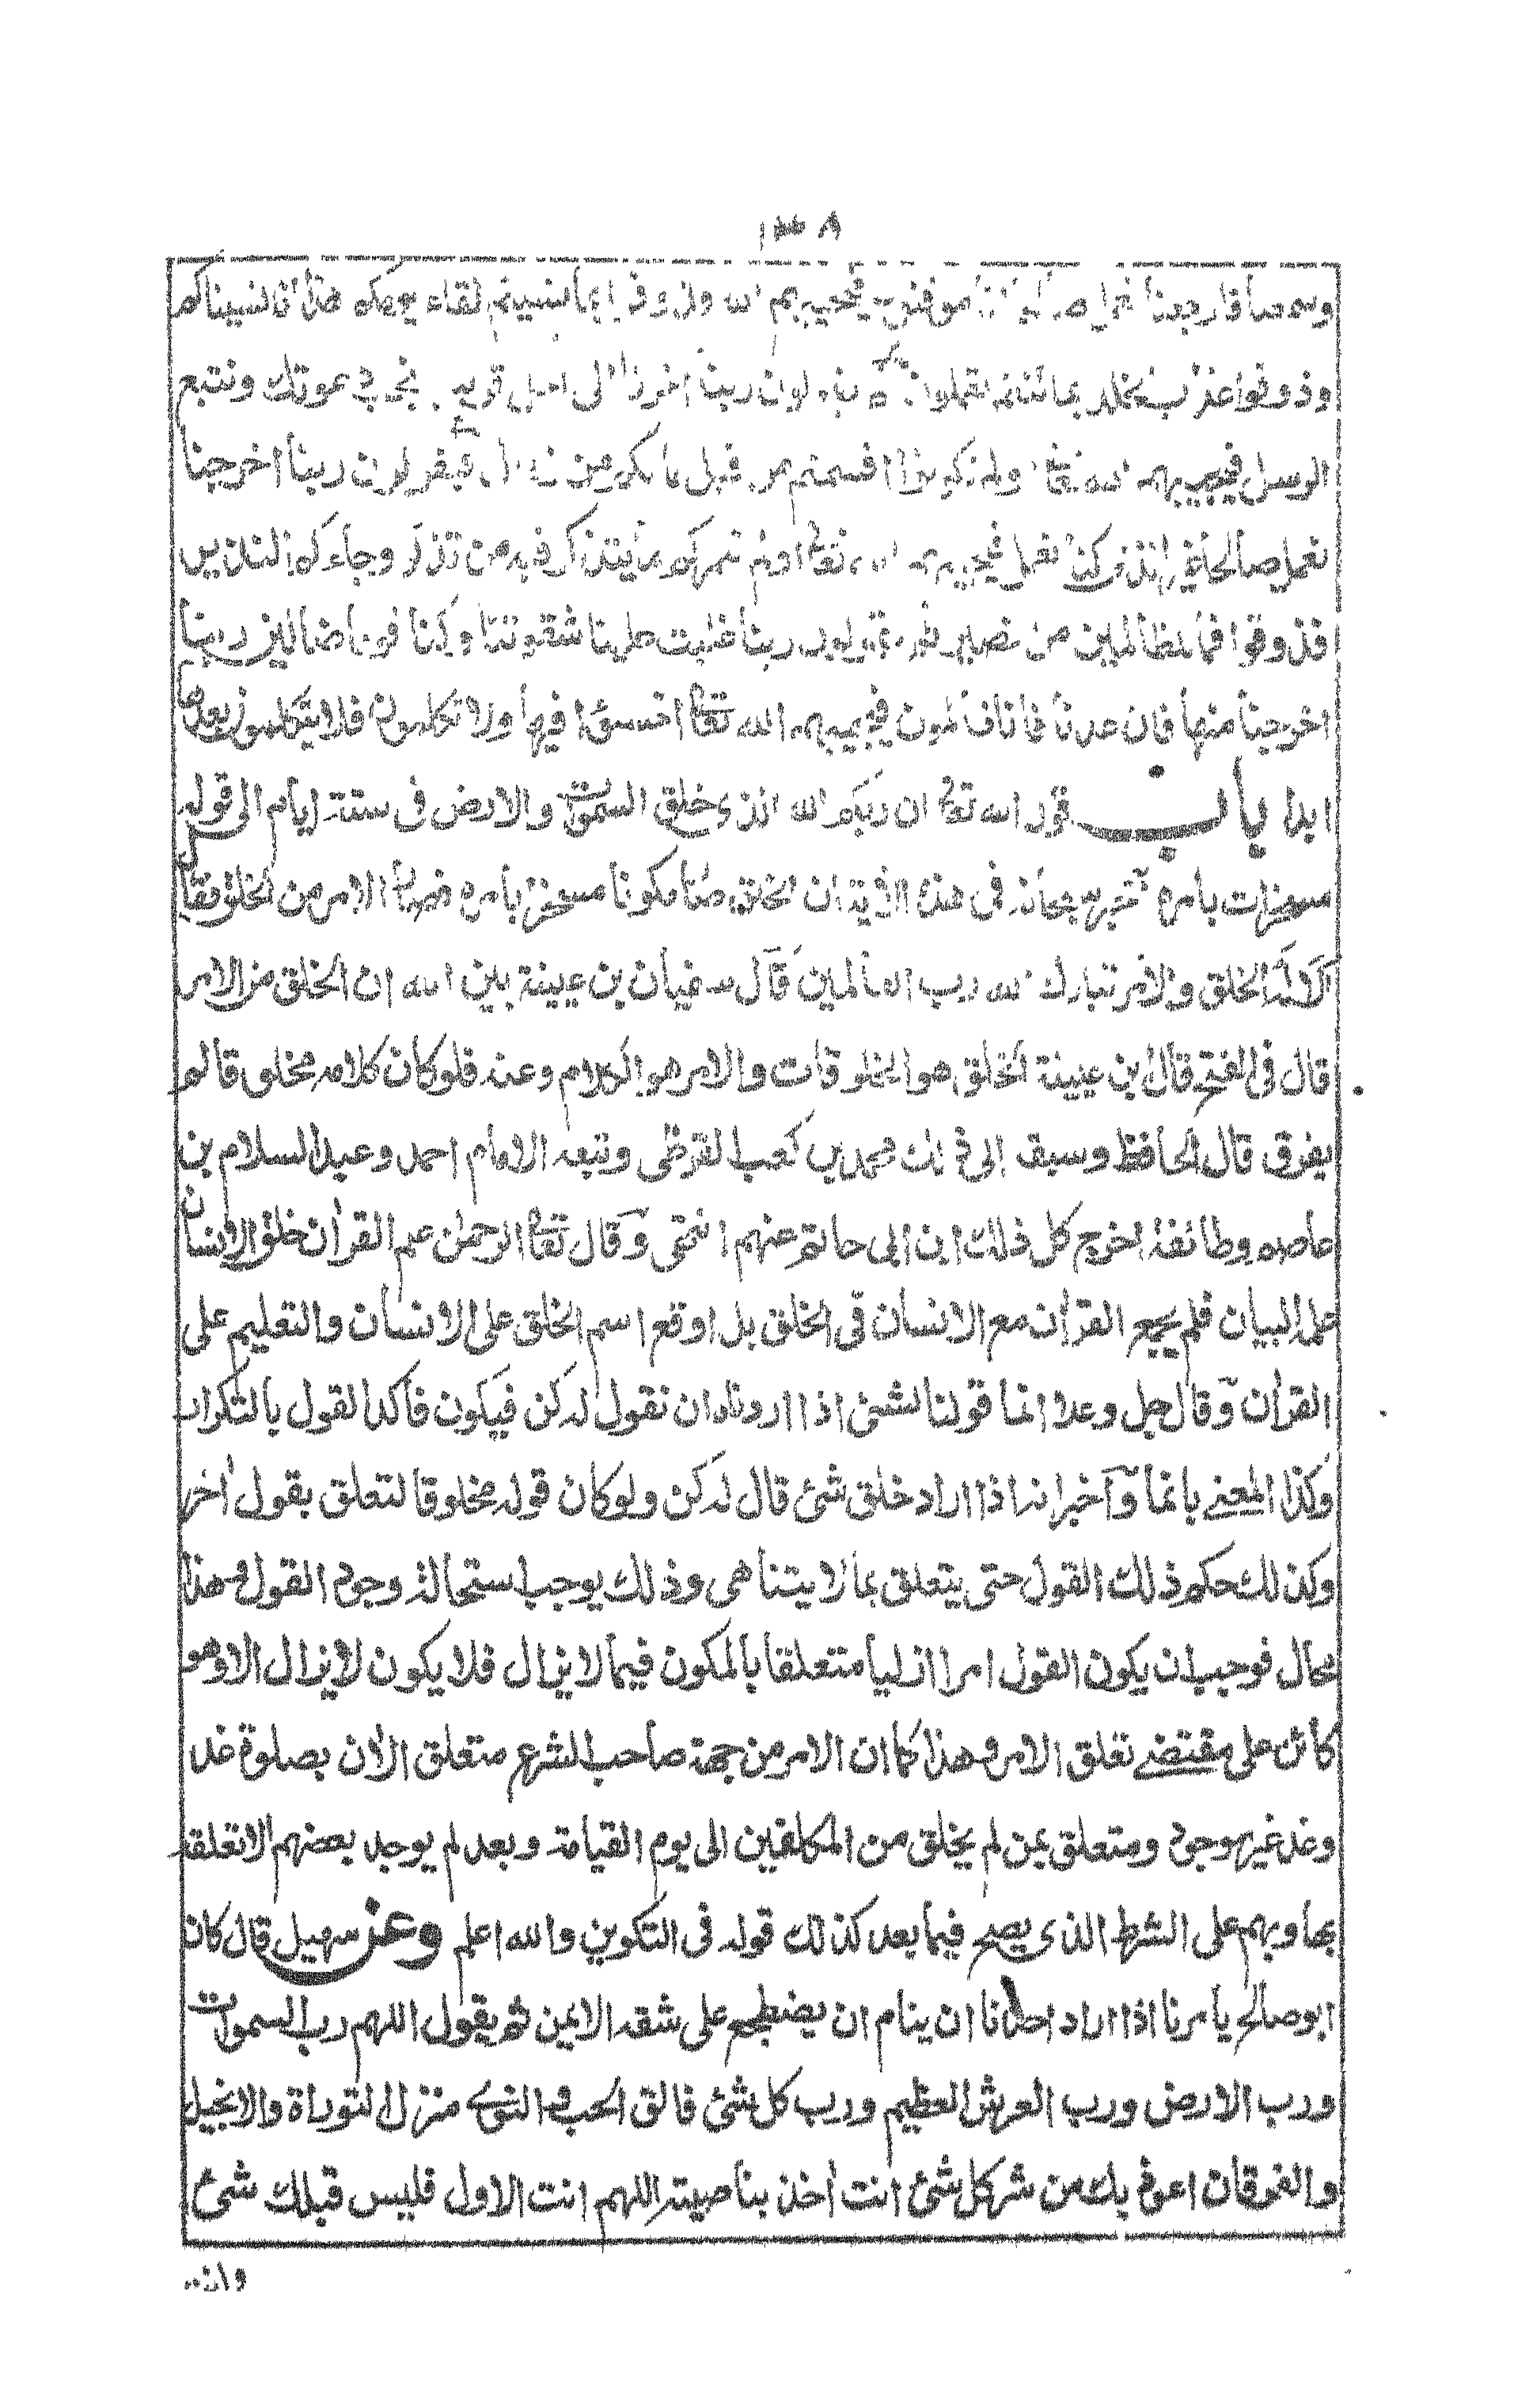 ١٣٨
وسمعنا فارجعنا نعمل صالحا انا موقنون فيجيبهم الله فذوقوا بما نسيتم لقاء يومكم هذا انا نسيناكم
وذوقوا عذاب الخلد بما كنتم تعملون ثم ينادون ربنا اخرنا الى اجل قريب نجب دعوتك ونتبع
الرسل فيجيبهم الله تعا اولم تكونوا اقسمتم من قبل ما لكم من زوال فيقولون ربنا اخرجنا
نعمل صالحا غير الذي كنا نعمل فيجيبهم الله تعا اولم نعمركم ما يتذكر فيه من تذكر وجاءكم النذير
فذوقوا فما للظالمين من نصير ثم يقولون ربنا غلبت علينا شقوتنا وكنا قوما ضالين ربنا
اخرجنا منها فان عدنا فانا ظالمون فيجيبهم الله تعا اخسؤا فيها ولا تكلمون فلا يتكلمون بعدها
ابدا باب قول الله تعا ان ربكم الله الذي خلق السموت والارض فى ستة ايام الى قوله
مسخرات بامره سبحانه فى هذه الآية ان الخلق مسخرا بامره الامر من الخلق فقال
الا له الخلق والامر تبارك الله رب العالمين قال سفيان بن عيينة بين الله ان الخلق من الامر
قال فى الفتح قال بن عيينة الخلق هو المخلوقات والامر هو الكلام وعنه فلو كان كلامه مخلوقا لم
يفرق قال الحافظ وسبق الى ذلك محمد بن كعب القرظى وتبعه الامام احمد وعبد السلام بن
عاصم وطائفة اخرج كل ذلك ابن ابى حاتم عنهم انتهى وقال تعا الرحمن علم القرآن خلق الانسان
علمه البيان فلم يجمع القرآن مع الانسان فى الخلق بل اوقع اسم الخلق على الانسان والتعليم على
القرآن وقال جل وعلا انما قولنا لشئ اذا اردناه ان نقول له كن فيكون فأكد القول بالتكرار
وكذا المعنے بانما وآخبر انه اذا اراد خلق شئ قال له كن ولو كان قوله مخلوقا لتعلق بقول اخر
وكذلك حكم ذلك القول حتى يتعلق بما لا يتناهى وذلك يوجب استحالة وجود القول وهذا
محال فوجب ان يكون القول امرا ازليا متعلقا بالمكون فيما لا يزال فلا يكون لا يزال الا وهو
كائن على مقتضے تعلق الامر وهذا كما ان الامر من جهة صاحب الشرع متعلق الآن بصلوة غد
وغد غير موجود ومتعلق بمن لم يخلق من المكلفين الى يوم القيامة وبعد لم يوجد بعضهم الا تعلقه
بها وبهم على الشرط الذى يصح فيما بعد كذلك قوله فى التكوين والله اعلم وعن سهيل قال كان
ابو صالح يأمرنا اذا اراد احدنا ان ينام ان يضطجع على شقه الايمن ثم يقول اللهم رب السموات
ورب الارض ورب العرش العظيم ورب كل شئ فالق الحب والنوى منزل التوراة والانجيل
والفرقان اعوذ بك من شر كل شئ انت آخذ بناصيته اللهم انت الاول فليس قبلك شئ
وانت